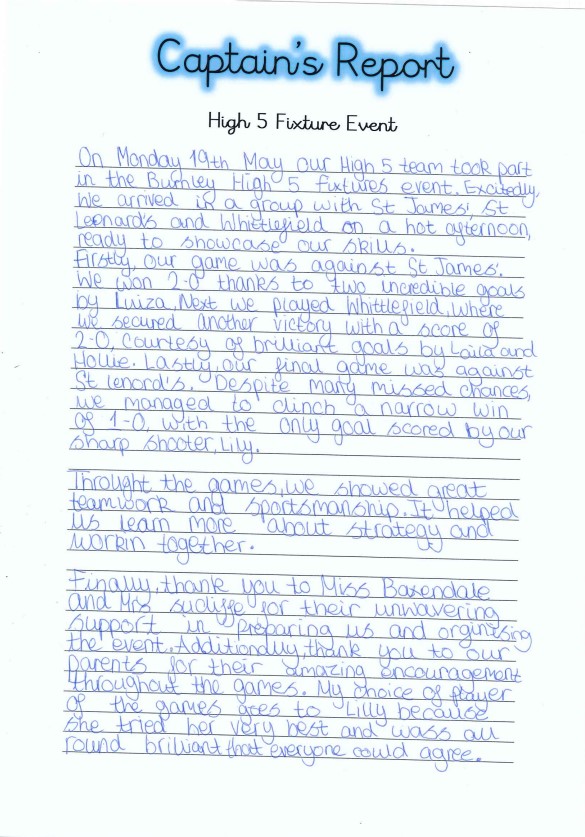 Captain's Report
High 5 Fixture Event
On Monday 19th May our High 5 team took part
in the Burnley High 5 fixtures event. Excitedly,
we arrived in a group with St James', St
Leonard's and Whittlefield on a hot afternoon,
ready to showcase our skills.
Firstly, our game was against St James'.
We won 2-0 thanks to two incredible goals
by Luiza. Next we played Whittlefield, where
we secured another victory with a score of
2-0, courtesy of brilliant goals by Laila and
Hollie. Lastly, our final game was against
St lenord's. Despite many missed chances,
we managed to clinch a narrow win
of 1-0, with the only goal scored by our
sharp shooter, Lily.
Throught the games, we showed great
teamwork and sportsmanship. It helped
us learn more about strategy and
workin together.
Finally, thank you to Miss Baxendale
and Mrs sucliffe for their unwavering
support in preparing us and orginising
the event. Additionally, thank you to our
parents for their amazing encouragement
throughout the games. My choice of player
of the games goes to Lilly because
she tried her very best and wass all
round brilliant that everyone could agree.